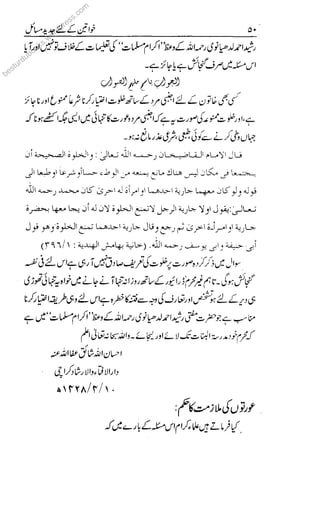 ۵۰ خواتین کے لئے جدید مسائل
رشید احمد لدھیانوی رحمہ اللہ کے وعظ "اکرام مسلمات" کی تعلیمات کے خلاف تو نہیں اور آیا
اس مسئلہ میں صرف گنجائش ہے یا جائز ہے۔
الجواب باسم ملہم الصواب
کسی بھی خاتون کے لئے اجنبی مرد کے ساتھ خلوت اختیار کرنا شرعاً ممنوع اور ناجائز
ہے، اور خلوت ممنوعہ کی صورت یہ ہے کہ اجنبی مرد و عورت کا تنہائی میں ایسی جگہ اکٹھے ہونا کہ
جہاں وطی کرنے سے کوئی طبعی شرعی عذر مانع نہ ہو۔
قال الامام القاضیخان رحمه الله تعالىٰ : والخلوة الصحیحة أن
یجتمعا فی مکان لیس هناك مانع من الوطء حسا وشرعا او طبعا الی
قوله ولو کان معهما جاریة احدهما او امرأة له اخری کان محمد رحمه الله
تعالیٰ یقول اولا جاریة الرجل لاتمنع الخلوة لان له أن یجا معها بحضرة
جاریة او امرأة اخری ثم رجع وقال جاریة احدهما تمنع الخلوة وهو قول
أبی حنیفة وابی یوسف رحمه الله. (خانیة بهامش الهندیة : ۳۹۶/۱)
سوال میں ذکر کردہ صورت پر خلوت کی تعریف صادق نہیں آ رہی ہے اس لئے فی نفسہ
گنجائش ہوگی۔ تاہم غیر محرم ڈرائیور کے ساتھ روزانہ تنہا آنے جانے میں خواہ تنہائی تھوڑی
ہی دیر کے لئے ہو تشخص اور تعارف کی وجہ سے فتنہ کا خطرہ ہے اس لئے وہی طریقہ اختیار کرنا
مناسب ہے جو حضرت مفتی رشید احمد لدھیانوی رحمہ اللہ کے وعظ "اکرام مسلمات" میں ہے
کہ محرم خود مدرسۃ البنات تک لائے اور لیجائے۔ واللہ سبحانہ تعالیٰ اعلم
احسان اللہ شائق عفا اللہ عنہ
دارالافتاء والارشاد کراچی
۱۰/۳/۱۴۲۸ھ
عورتوں کی ملازمت کا حکم:
کیا فرماتے ہیں علماء کرام اس مسئلہ کے بارے میں کہ